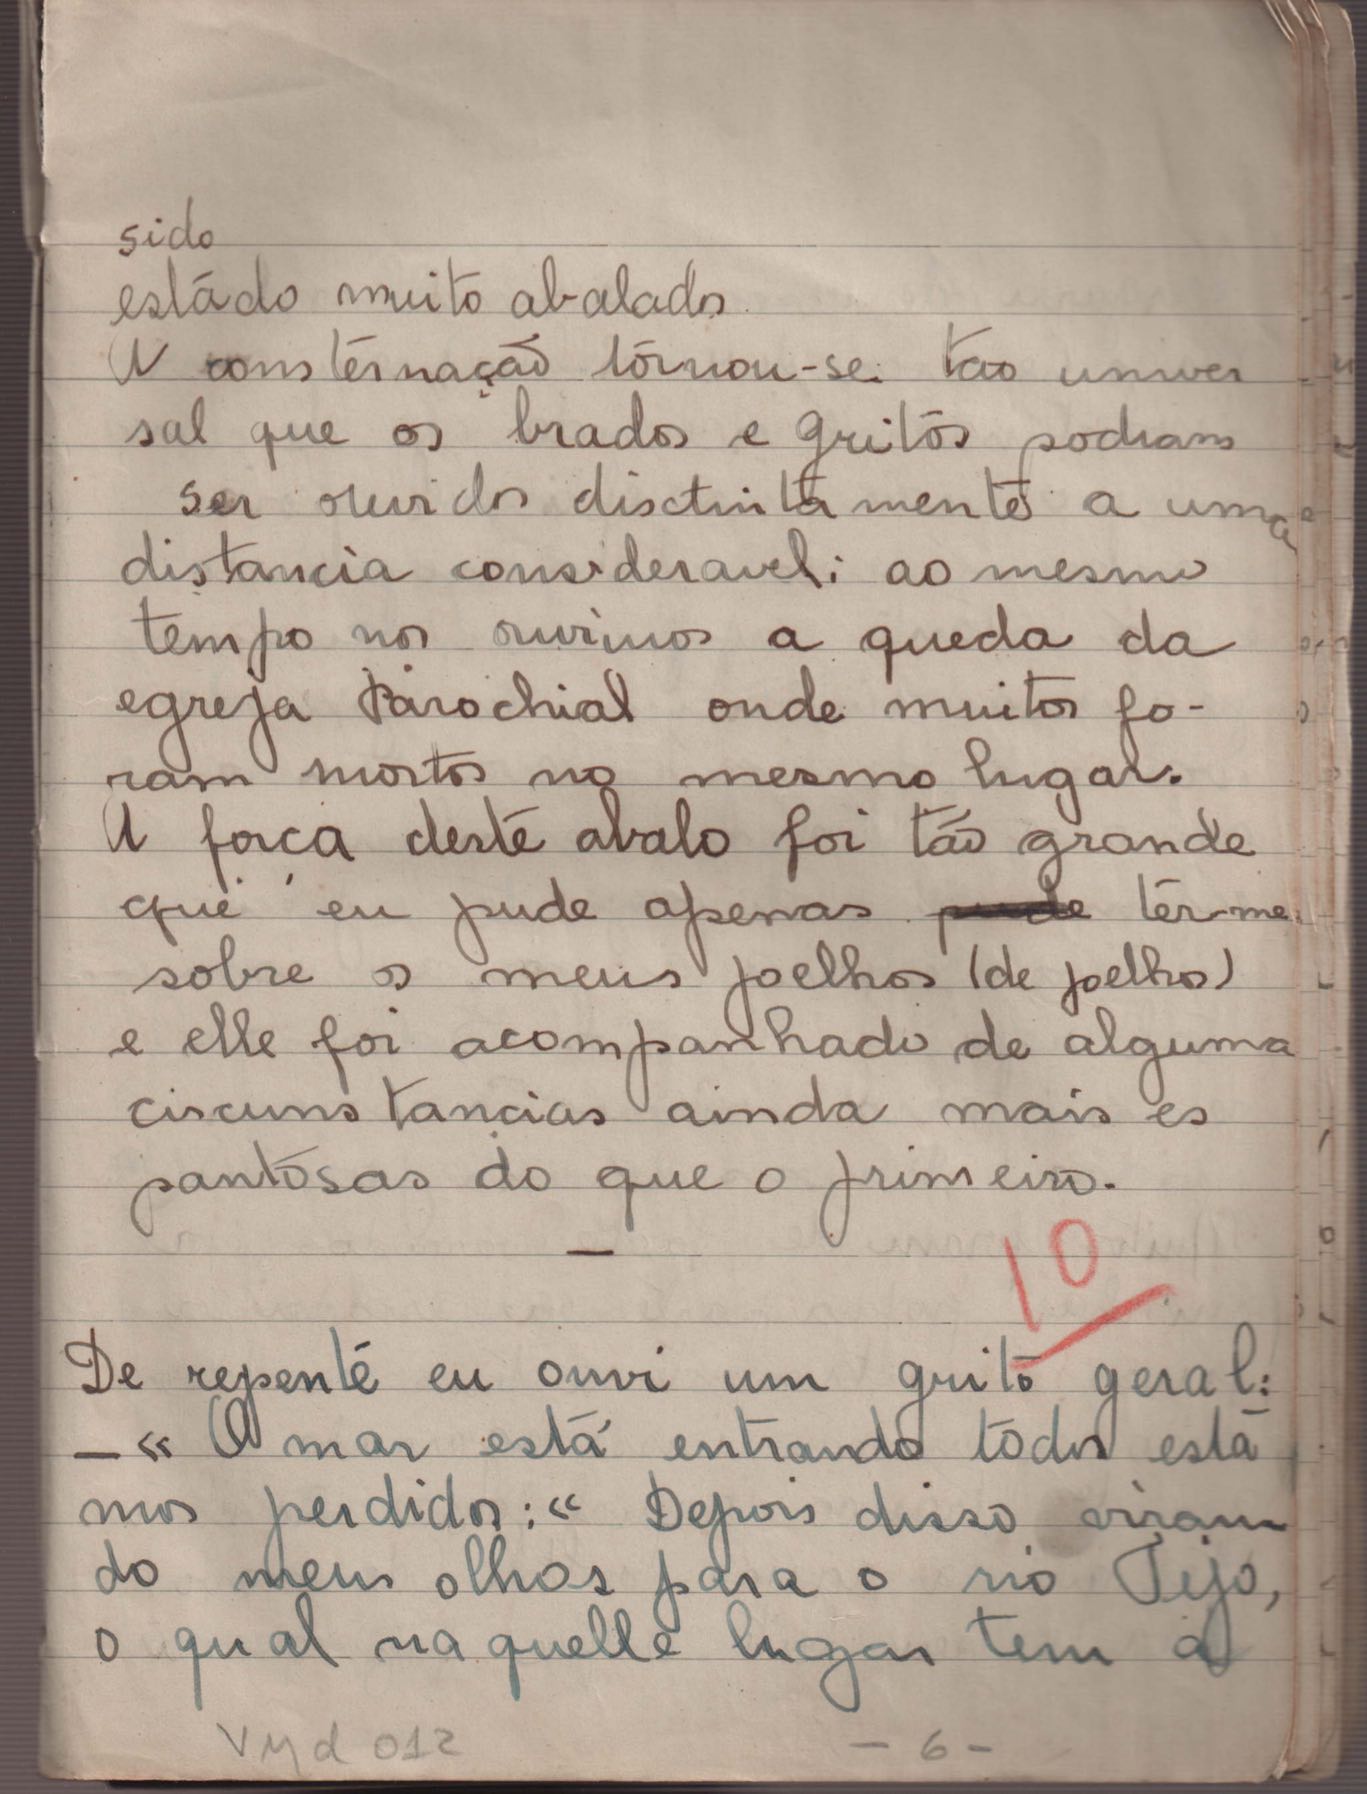 sido
estádo muito abalados
A consternação tornou-se tão univer
sal que os brados e gritos podiam
ser ouvidos disctintamente a uma
distancia consideravel: ao mesmo
tempo nos ouvimos a queda da
egreja Parochial onde muitos fo-
ram mortos no mesmo lugar.
A força deste abalo foi tão grande
que eu pude apenas pude ter-me
sobre os meus joelhos (de joelhos)
e elle foi acompanhado de alguma
circunstancias ainda mais es
pantosas do que o primeiro.
10
De repente eu ouvi um grito geral:
—« O mar está entrando todos esta
mos perdidos:« Depois disso viran
do meus olhos para o rio Tejo,
o qual naquelle lugar tem a
VMd 012 - 6 -